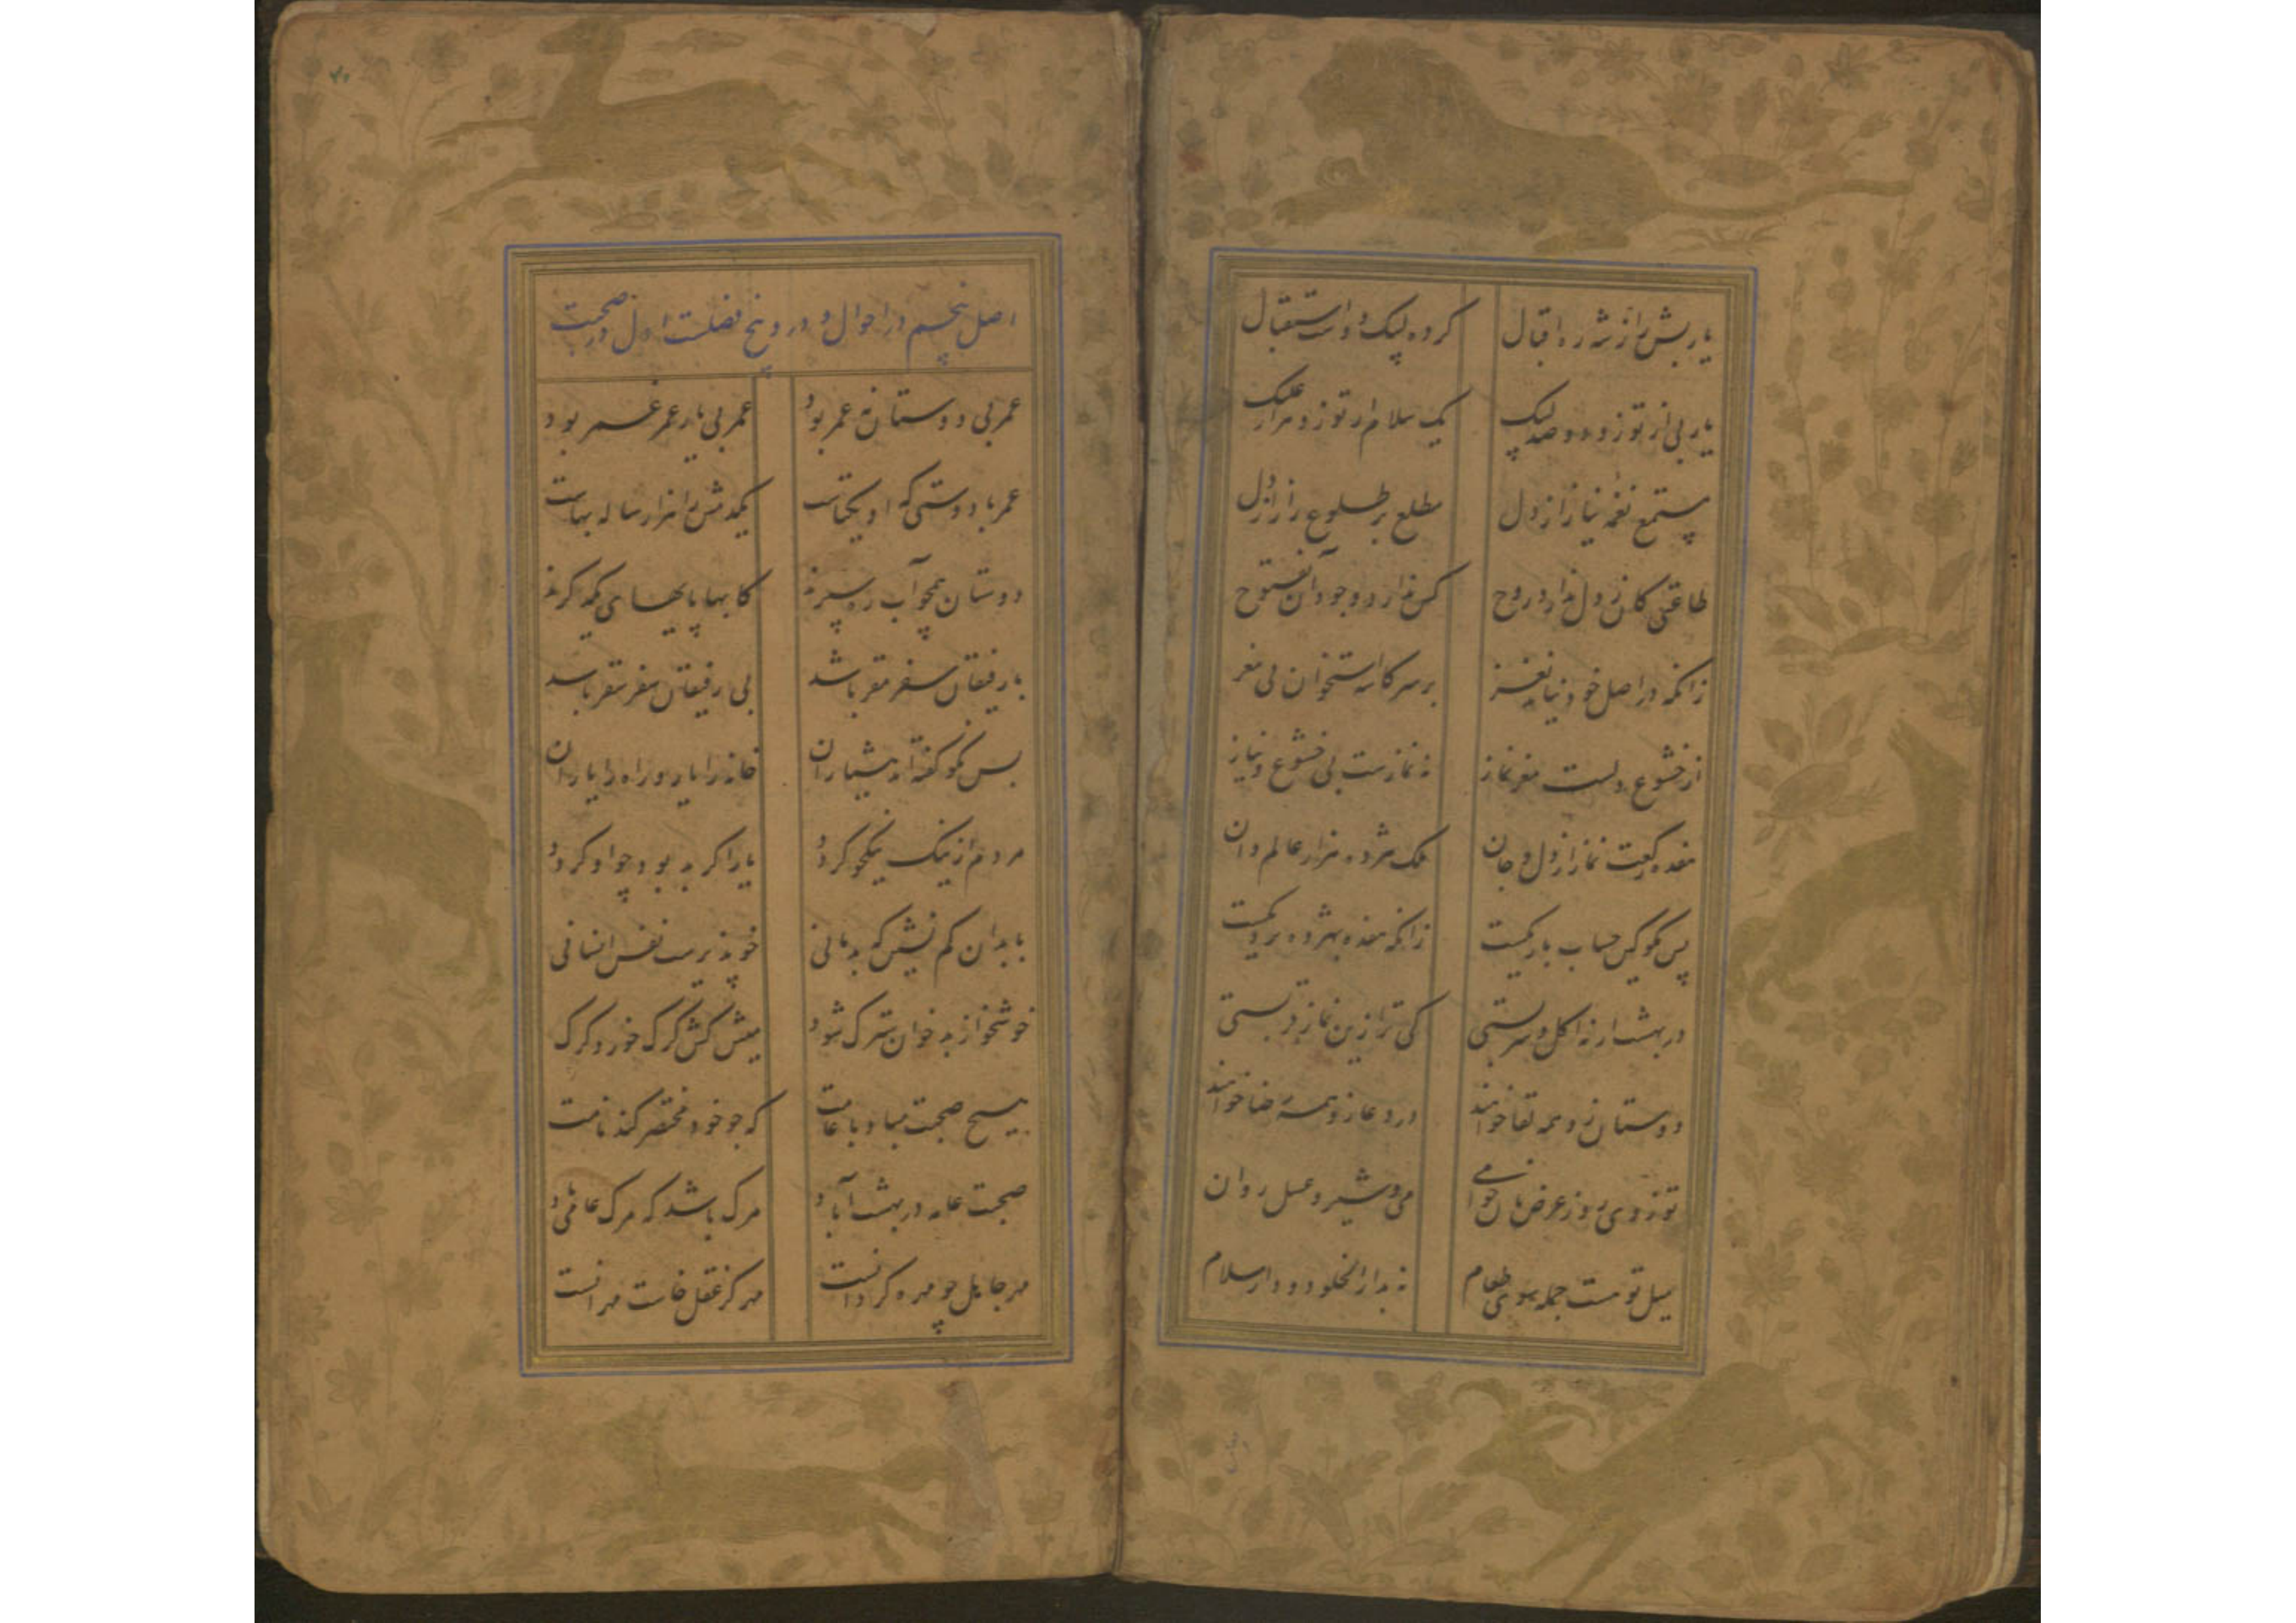 یاربش را ز شه ره اقبال
کرده لبیک دوست استقبال
یاربی از تو زو دو صد لبیک
یک سلام از تو زو هزار علیک
مستمع نغمه نیاز از دل
مطلع بر طلوع راز از دل
طاعتی کان ز دل ندارد روح
کس ندارد وجود آن بفتوح
زانکه در اصل خود نیاید نغز
بر سر کاسه استخوان بی مغز
از خشوع دلست مغز نماز
نه نمازست بی خشوع و نیاز
هفده رکعت نماز از دل و جان
ملک هژده هزار عالم دان
پس مگو کین حساب باریکست
زانکه هفده بهژده نزدیکست
در بهشت ار نه اکل و شربستی
کی ترا زین نماز قربستی
دوستان زو همه لقا خواهند
در دعا زو همه رضا خواهند
تو ز وی روز عرض نان خواهی
می و شیر و عسل روان
میل تو هست جمله سوی طعام
نه بدار الخلود و دار سلام
اصل پنجم در احوال و درو پنج فصلست اول در صحبت
عمر بی دوستان نه عمر بود
عمر بی یار عمر غمر بود
عمر با دوستی که او یکتاست
یکدمش را هزار ساله بهاست
دوستان همچو آب ره سپرند
کابها پایهای یکدگرند
با رفیقان سفر مقر باشد
بی رفیقان سفر سقر باشد
بس نکو گفته اند هشیاران
خانه را یار و راه را یاران
مردم از نیک نیکخو گردد
یار اگر بد بود چو او گردد
با بدان کم نشین که بد مانی
خو پذیرست نفس انسانی
خوشخو از بدخوان سترک شود
میش کش گرگ خورد گرگ
هیچ صحبت مباد با عامت
که چو خود مختصر کند نامت
صحبت عامه در بهشت آباد
مرگ باشد که مرگ عامی
مهر جاهل چو مهره گردانست
مهر کز عقل خاست مهر آنست